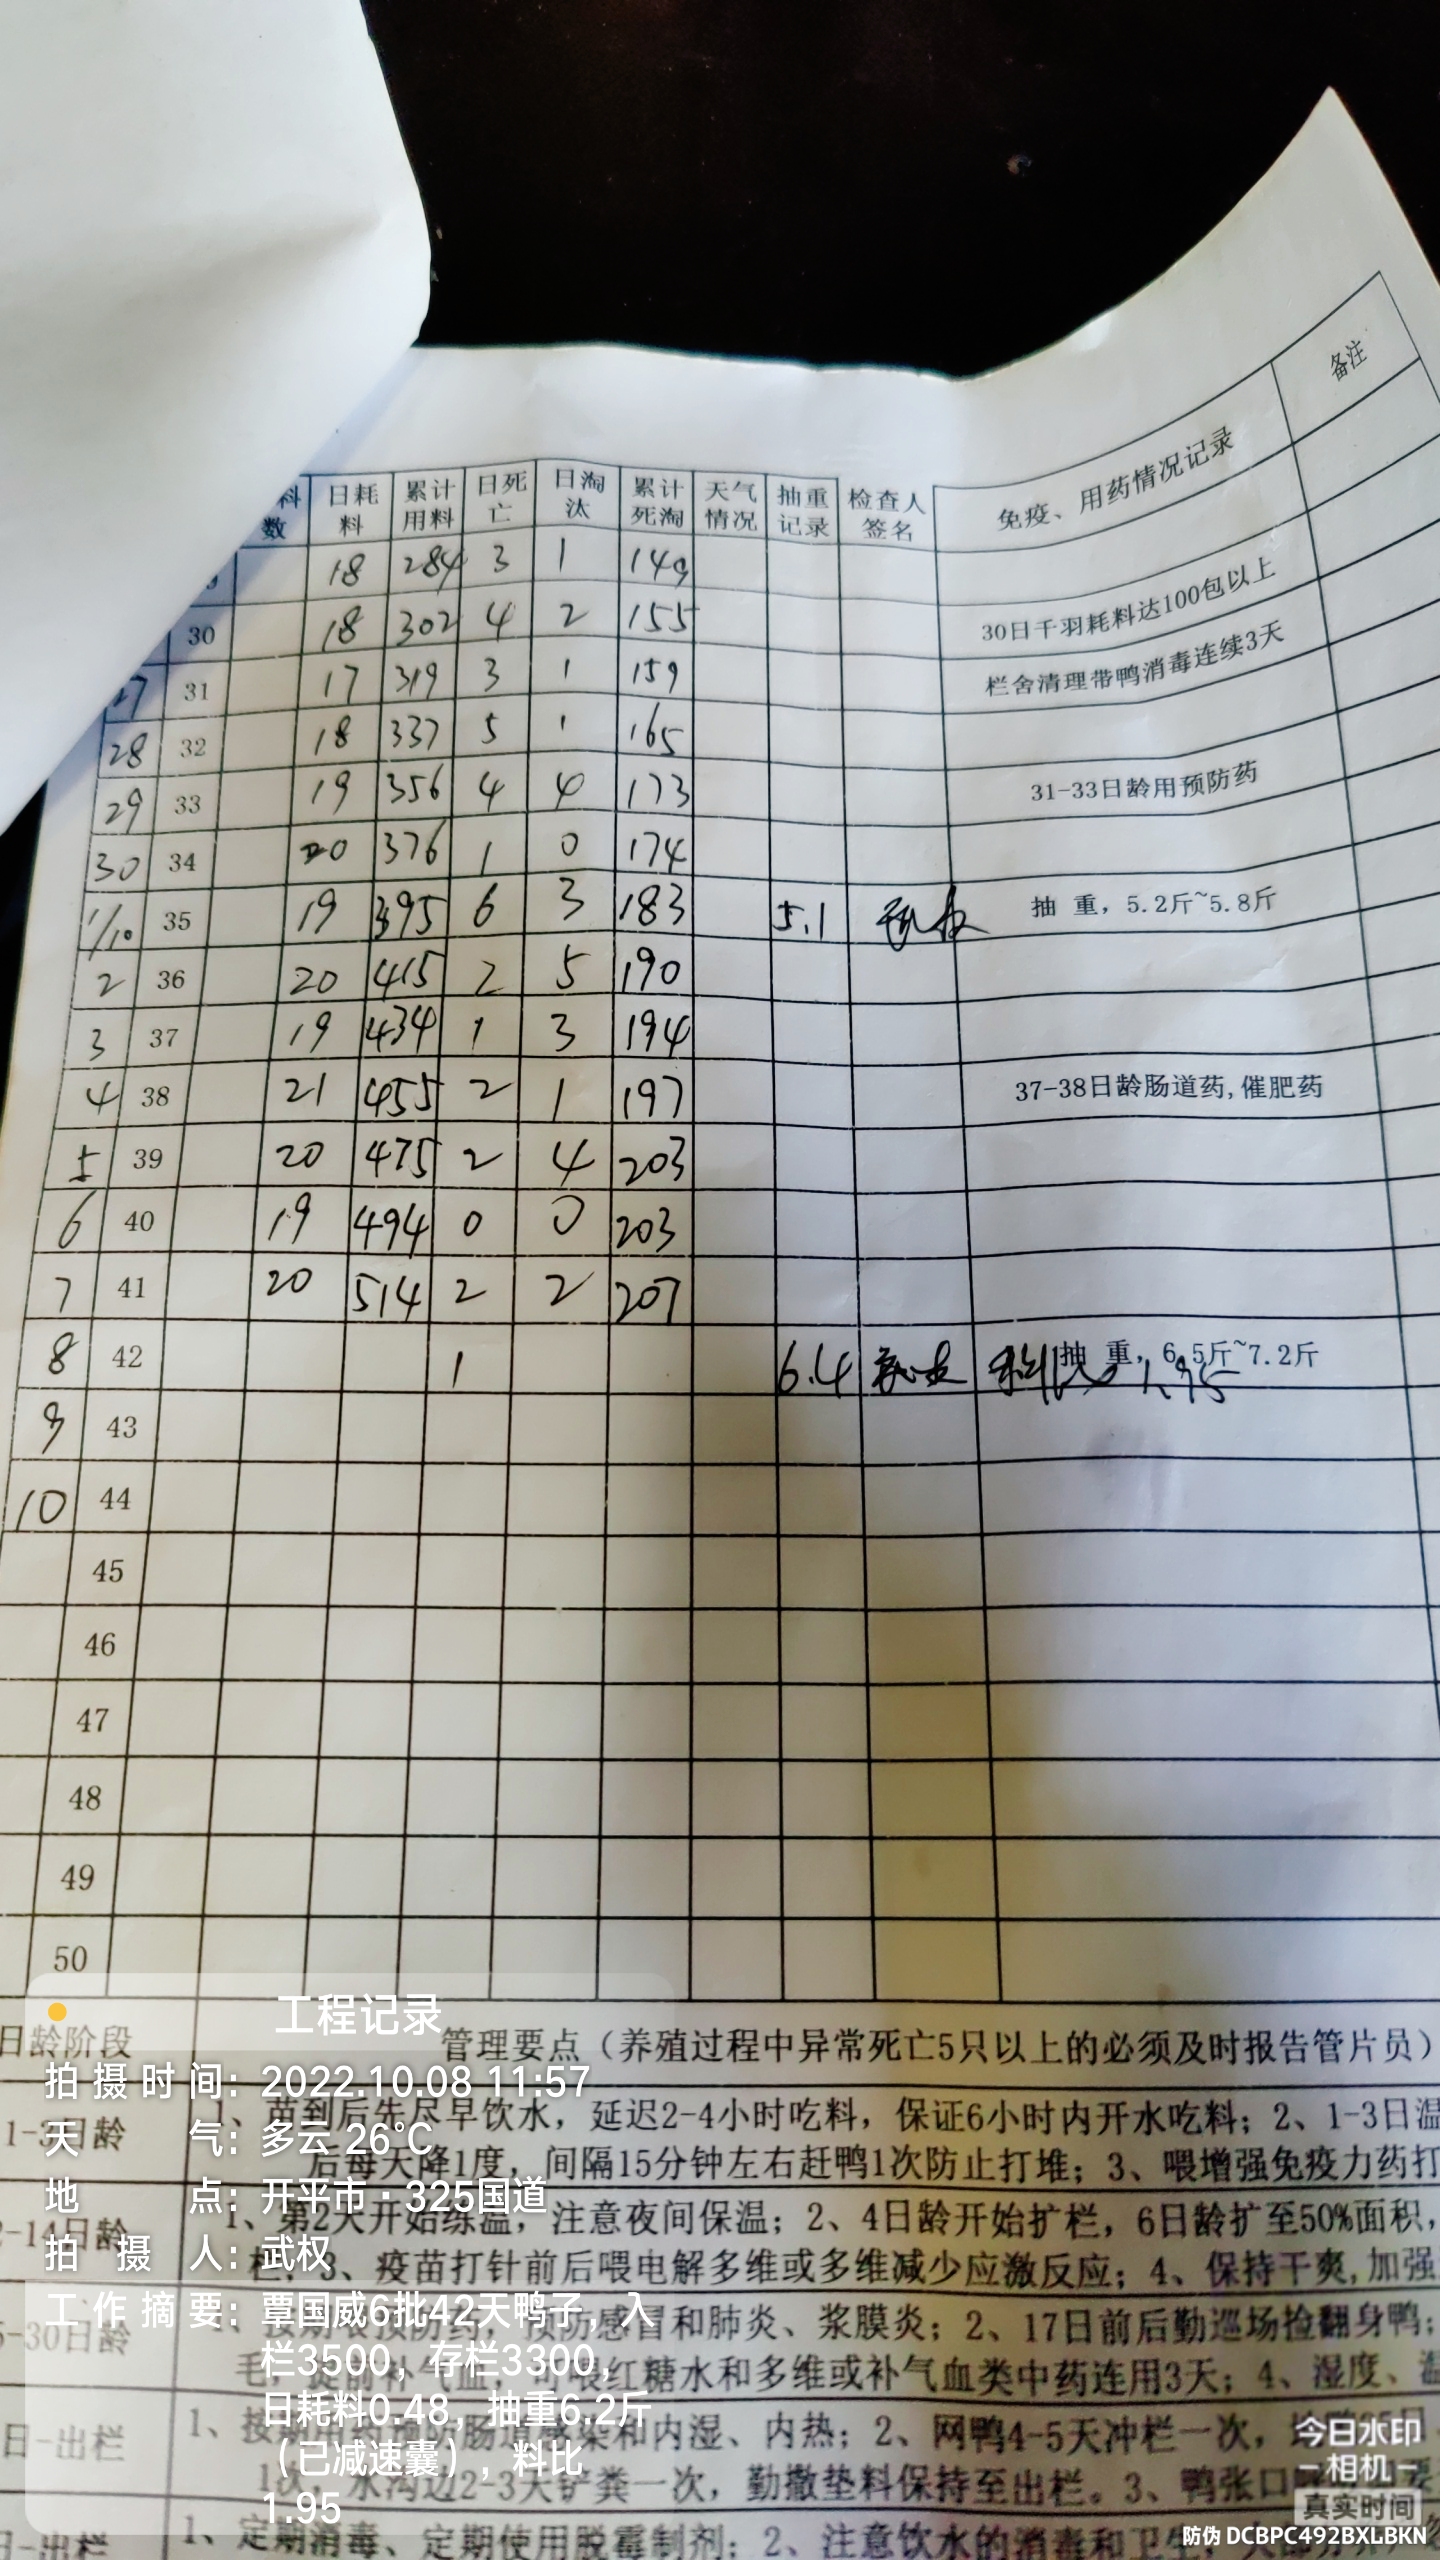 料数 日耗料 累计用料 日死亡 日淘汰 累计死淘 天气情况 抽重记录 检查人签名 免疫、用药情况记录 备注
18 284 3 1 149
30 18 302 4 2 155 30日千羽耗料达100包以上
27 31 17 319 3 1 159 栏舍清理带鸭消毒连续3天
28 32 18 337 5 1 165
29 33 19 356 4 4 173 31-33日龄用预防药
30 34 20 376 1 0 174
1/10 35 19 395 6 3 183 5.1 抽 重，5.2斤~5.8斤
2 36 20 415 2 5 190
3 37 19 434 1 3 194
4 38 21 455 2 1 197 37-38日龄肠道药,催肥药
5 39 20 475 2 4 203
6 40 19 494 0 0 203
7 41 20 514 2 2 207
8 42 1 6.4 抽 重，6.5斤~7.2斤 料比 1.95
9 43
10 44
45
46
47
48
49
50
日龄阶段 管理要点（养殖过程中异常死亡5只以上的必须及时报告管片员）
1-3日龄 1、苗到后先尽早饮水，延迟2-4小时吃料，保证6小时内开水吃料；2、1-3日温
后每天降1度，间隔15分钟左右赶鸭1次防止打堆；3、喂增强免疫力药打
2-14日龄 1、第2天开始练温，注意夜间保温；2、4日龄开始扩栏，6日龄扩至50%面积，
栏；3、疫苗打针前后喂电解多维或多维减少应激反应；4、保持干爽,加强
5-30日龄 预防感冒和肺炎、浆膜炎；2、17日前后勤巡场捡翻身鸭；
喂红糖水和多维或补气血类中药连用3天；4、湿度、温
日-出栏 1、 和内湿、内热；2、网鸭4-5天冲栏一次，
1次，水沟边2-3天铲粪一次，勤撒垫料保持至出栏。3、鸭张口
日-出栏 1、定期消毒、定期使用脱霉制剂；2、注意饮水的消毒和卫生，
工程记录
拍摄时间：2022.10.08 11:57
天气：多云 26°C
地点：开平市·325国道
拍摄人：武权
工作摘要：覃国威6批42天鸭子，入
栏3500，存栏3300，
日耗料0.48，抽重6.2斤
（已减速囊），料比
1.95
今日水印
相机
真实时间
防伪 DCBPC492BXLBKN